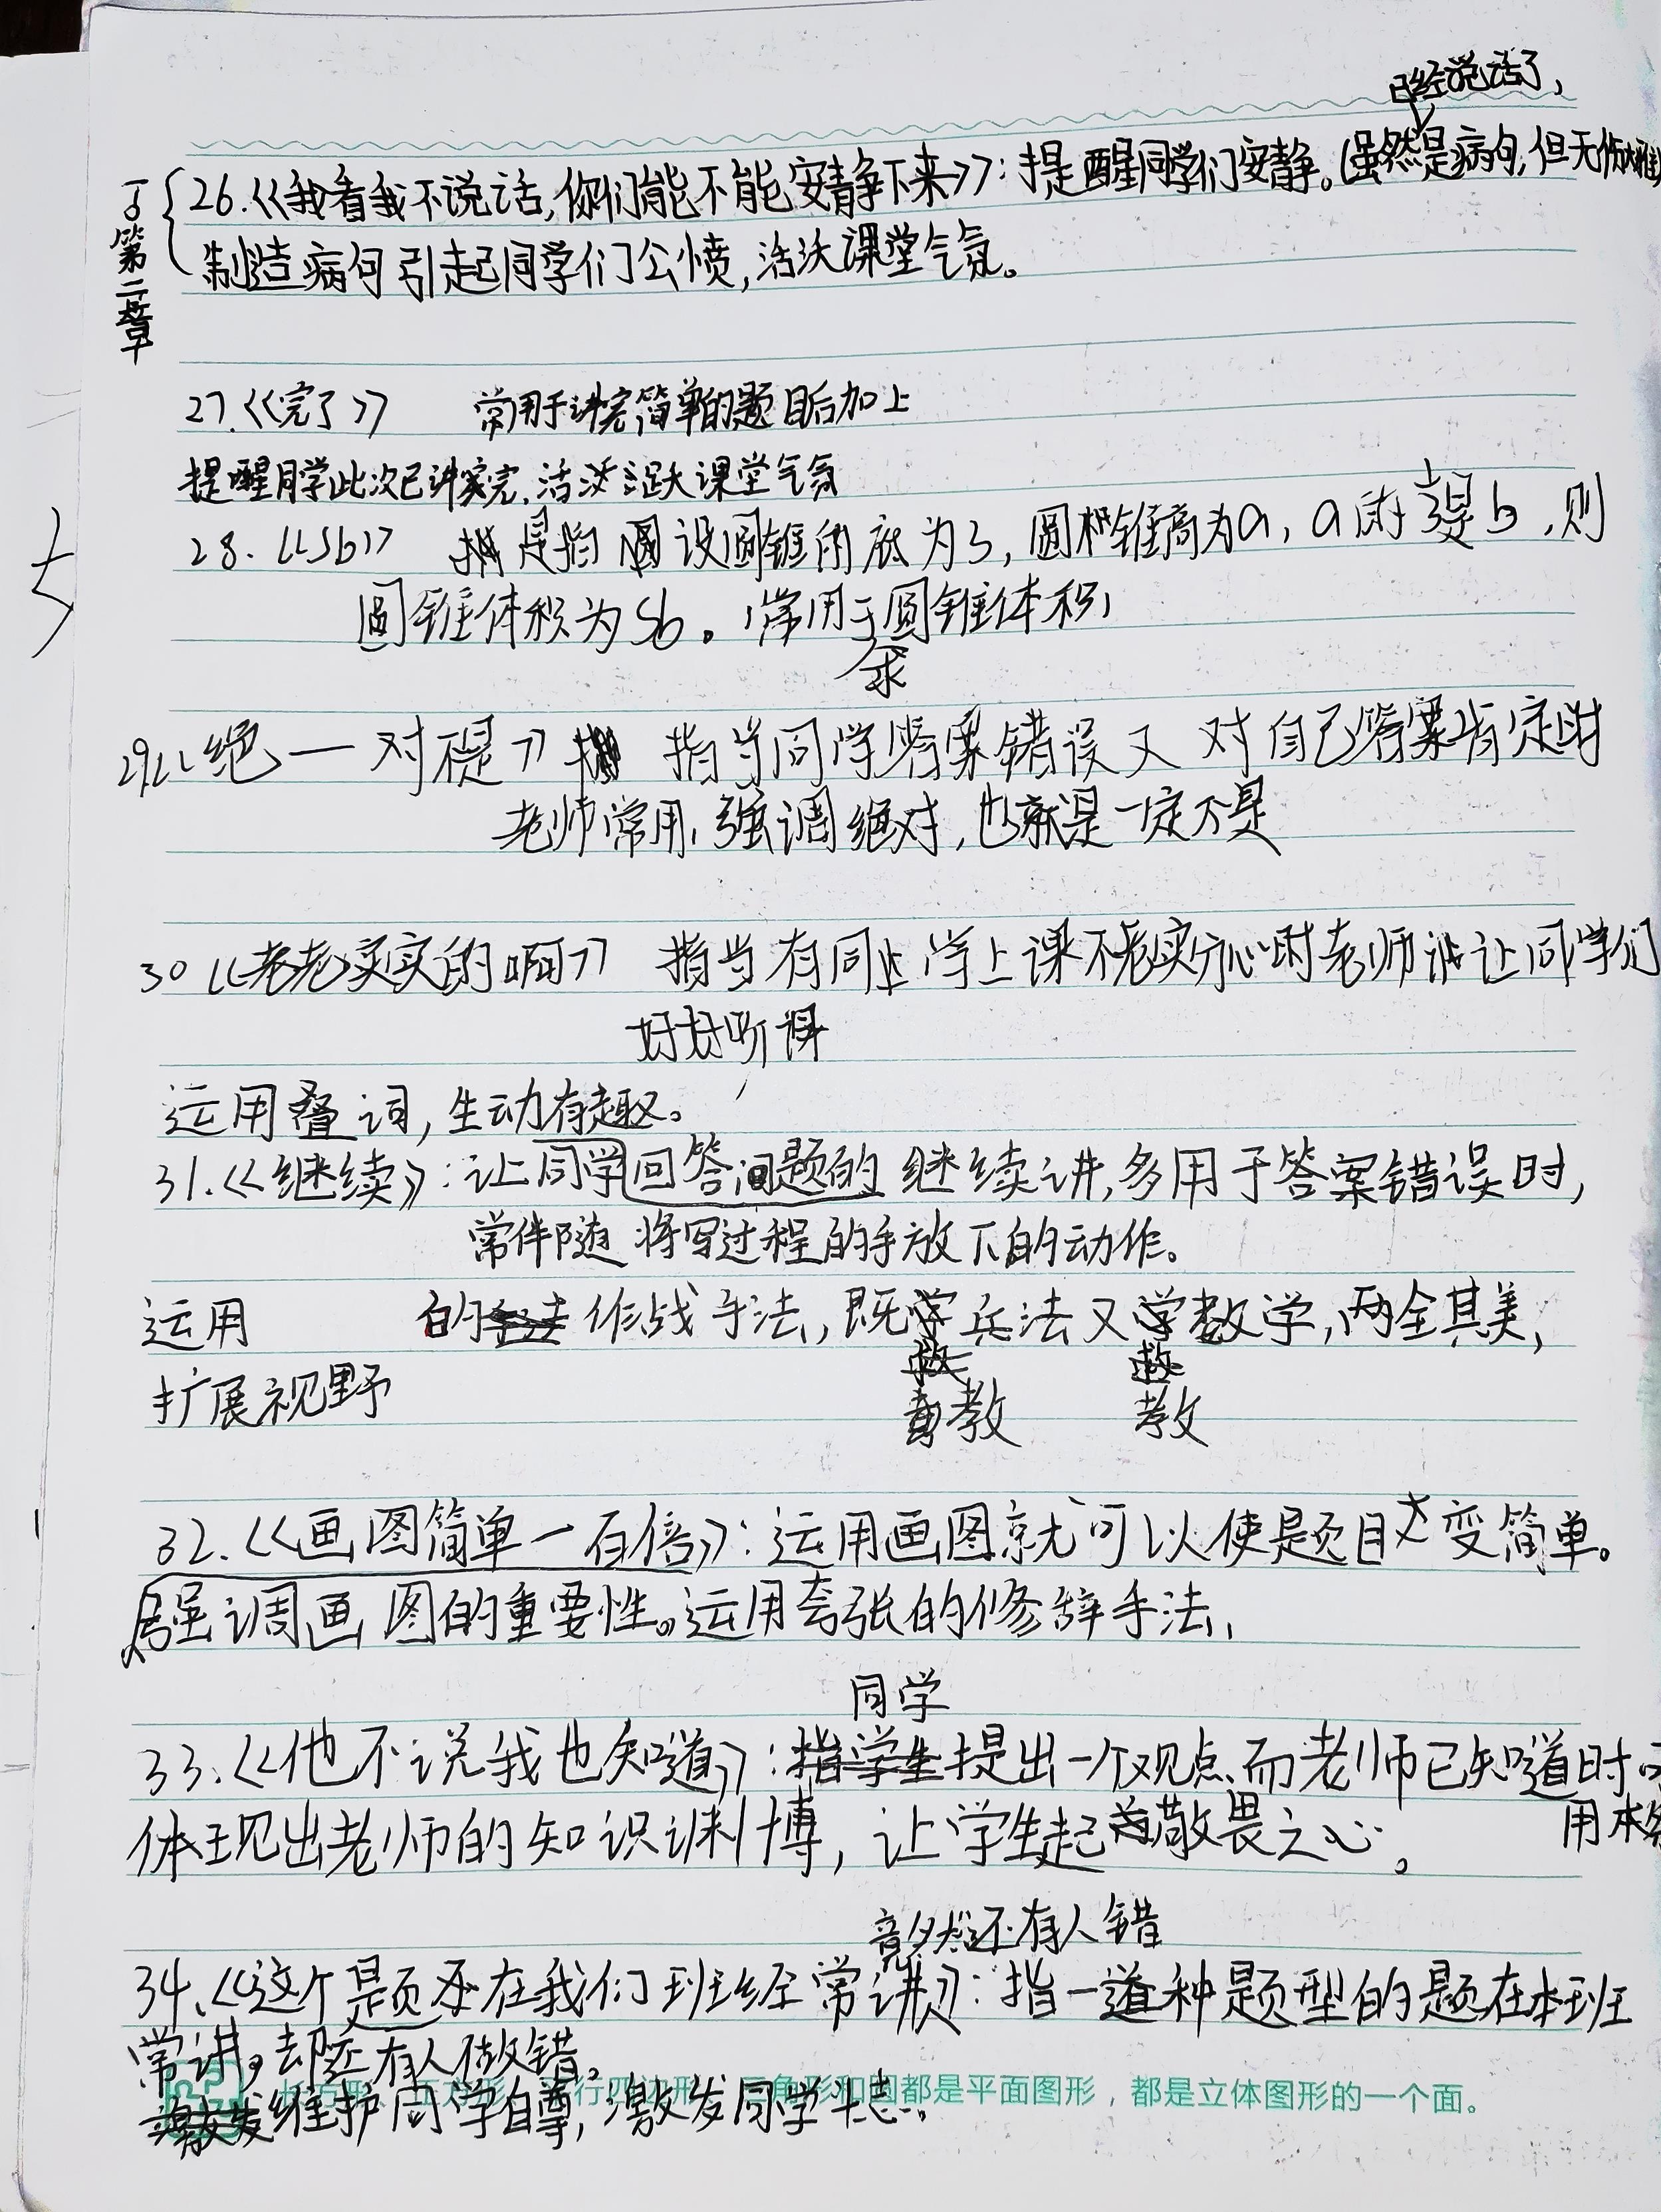 已经说话了,
26.《我看我不说话,你们能不能安静下来》:提醒同学们安静。(虽然是病句,但无伤大雅)
制造病句引起同学们公愤,活沃课堂气氛。
第二章
27.《完了》 常用于讲完简单的题目后加上
提醒同学此次已讲完,活跃课堂气氛
28.《sb》 是指设圆锥的底为s,圆锥高为a,a的⅓是b,则
圆锥体积为sb。常用于圆锥体积
求
29《绝一对不是》 指当同学答案错误又对自己答案肯定时
老师常用,强调绝对,也就是一定不是
30《老老实实的啊》 指当有同学上课不老实分心时老师让同学们
好好听课
运用叠词,生动有趣。
31.《继续》:让同学回答问题的继续讲,多用于答案错误时,
常伴随将写过程的手放下的动作。
运用 的作战手法,既学兵法又学数学,两全其美,
教 教
扩展视野
32.《画图简单一百倍》:运用画图就可以使题目变简单。
强调画图的重要性。运用夸张的修辞手法,
同学
33.《他不说我也知道》:指学生提出一个观点而老师已知道时可
用本条
体现出老师的知识渊博,让学生起敬畏之心。
竟然还有人错
34.《这个题还在我们班经常讲》:指一种题型的题在本班
常讲,却还有人做错。
维护同学自尊,激发同学斗志。
行四边形、三角形和圆都是平面图形,都是立体图形的一个面。